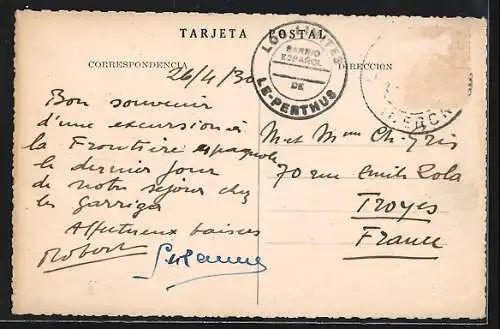 TARJETA POSTAL
CORRESPONDENCIA
DIRECCION
LOS LIMITES
BARRIO
ESPAÑOL
DE
LE-PERTHUS
26/4/30
Bon souvenir
d'une excursion à
la Frontière espagnole
le dernier jour
de notre séjour chez
les Garriga
Affectueux baisers
Robert Suzanne
M et Mme Ch. Gris
70 rue Emile Zola
Troyes
France